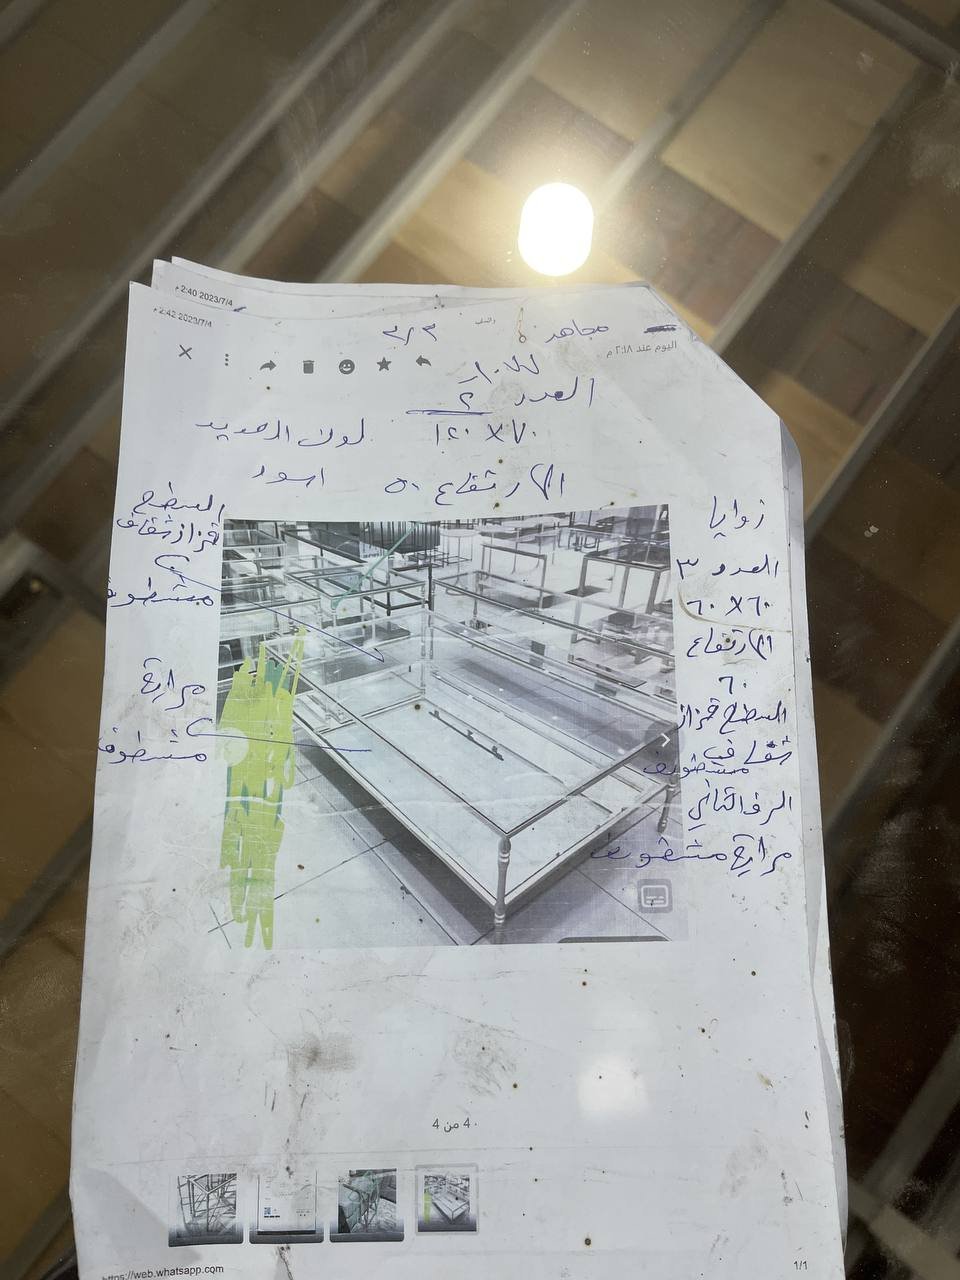 2:40 2023/7/4 م
2:42 2023/7/4 م
مجاهد
٣/٣
اليوم عند ٢:١٨ م
العدد ٢
١٢٠X٧٠
لون الحديد
اسود
الارتفاع ٥٠
السطح
قزاز شفاف
مشطوف
مراية
مشطوف
زوايا
العدد ٣
٦٠X٦٠
الارتفاع
٦٠
السطح قزاز
شفاف
مشطوف
الرف الثاني
مراية مشطوف
4 من 4
https://web.whatsapp.com
1/1